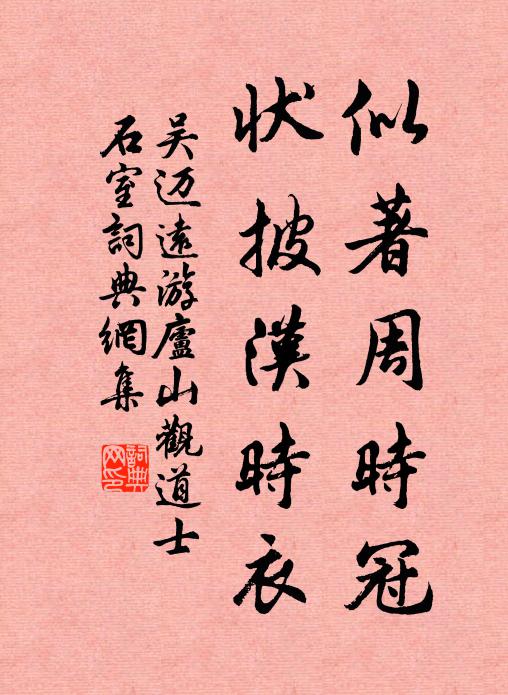 似著周時冠
狀披漢時衣
吴迈遠游廬山觀道士
石室詞典網集
詞典
网印